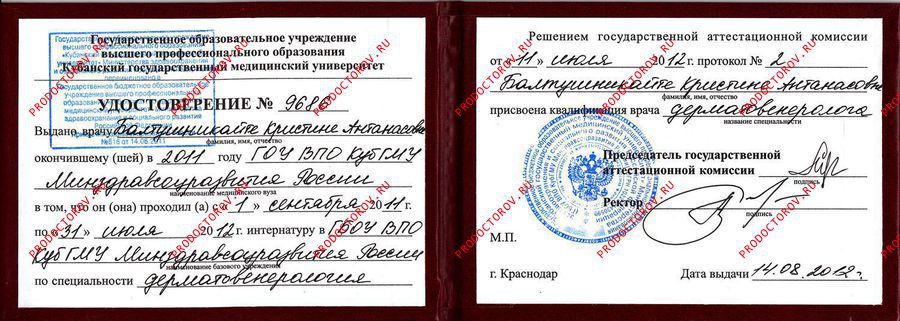 Государственное образовательное учреждение
высшего профессионального образования
Кубанский государственный медицинский университет
УДОСТОВЕРЕНИЕ № 9686
Выдано врачу Балтушникайте Кристине Антанасовне
фамилия, имя, отчество
окончившему (шей) в 2011 году ГОУ ВПО КубГМУ
Минздравсоцразвития России
наименование медицинского вуза
в том, что он (она) проходил (а) с «1» сентября 2011 г.
по «31» июля 2012 г. интернатуру в ГБОУ ВПО
КубГМУ Минздравсоцразвития России
наименование базового учреждения
по специальности дерматовенерология
Решением государственной аттестационной комиссии
от «11» июля 2012 г. протокол № 2
Балтушникайте Кристине Антанасовне
фамилия, имя, отчество
присвоена квалификация врача дерматовенеролога
название специальности
Председатель государственной
аттестационной комиссии
подпись
Ректор
подпись
М.П.
г. Краснодар
Дата выдачи 14.08.2012г.
PRODOCTOROV.RU